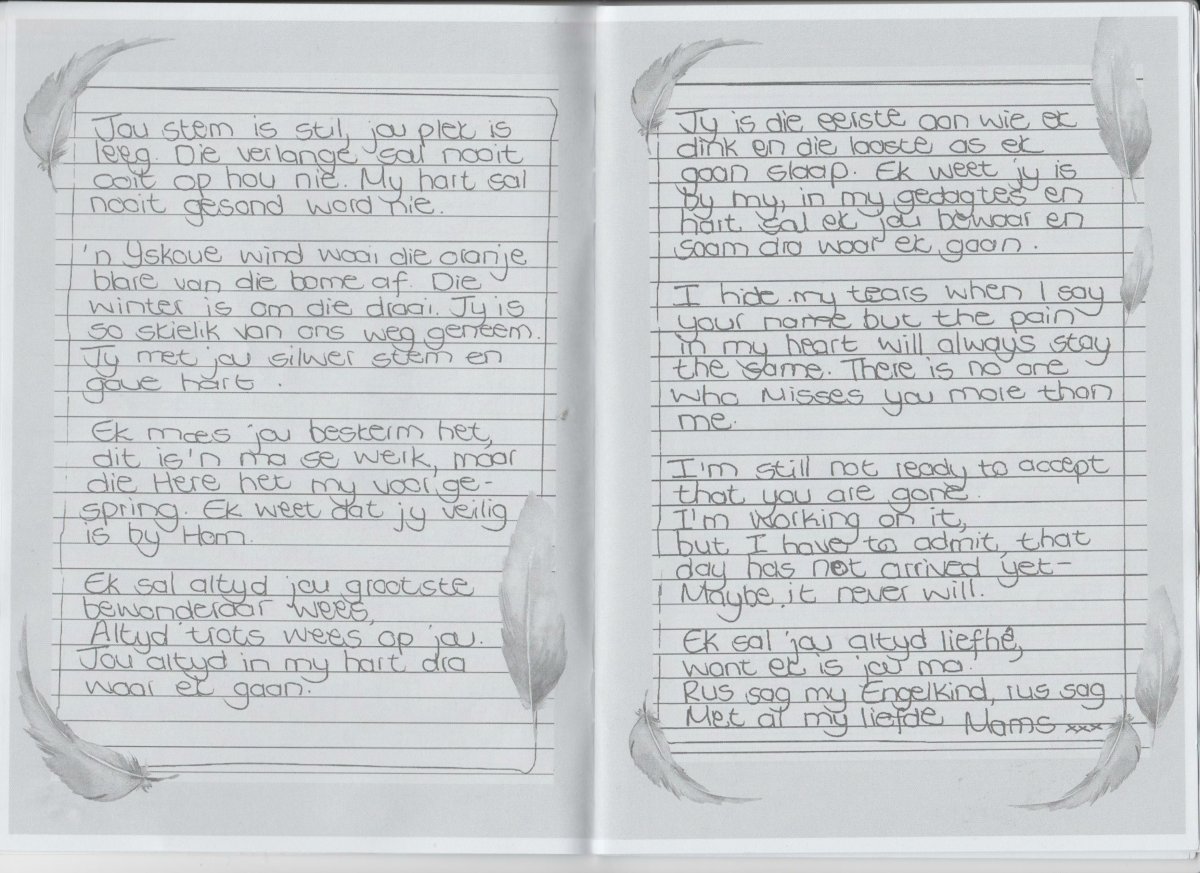 Jou stem is stil, jou plek is
leeg. Die verlange sal nooit
ooit op hou nie. My hart sal
nooit gesond word nie.
'n Yskoue wind waai die oranje
blare van die bome af. Die
winter is om die draai. Jy is
so skielik van ons weg geneem.
Jy met jou silwer stem en
goue hart.
Ek moes jou beskerm het,
dit is 'n ma se werk, maar
die Here het my voor ge-
spring. Ek weet dat jy veilig
is by Hom.
Ek sal altyd jou grootste
bewonderaar wees,
Altyd trots wees op jou.
Jou altyd in my hart dra
waar ek gaan.
Jy is die eerste aan wie ek
dink en die laaste as ek
gaan slaap. Ek weet jy is
by my, in my gedagtes en
hart sal ek jou bewaar en
saam dra waar ek gaan.
I hide my tears when I say
your name but the pain
in my heart will always stay
the same. There is no one
who Misses you more than
me.
I'm still not ready to accept
that you are gone.
I'm working on it,
but I have to admit, that
day has not arrived yet-
Maybe it never will.
Ek sal jou altyd liefhê,
want ek is jou ma.
Rus sag my Engelkind, rus sag
Met al my liefde Mams xxx